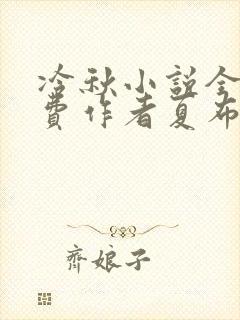 冷秋小説全
費作者夏布
齊娘子